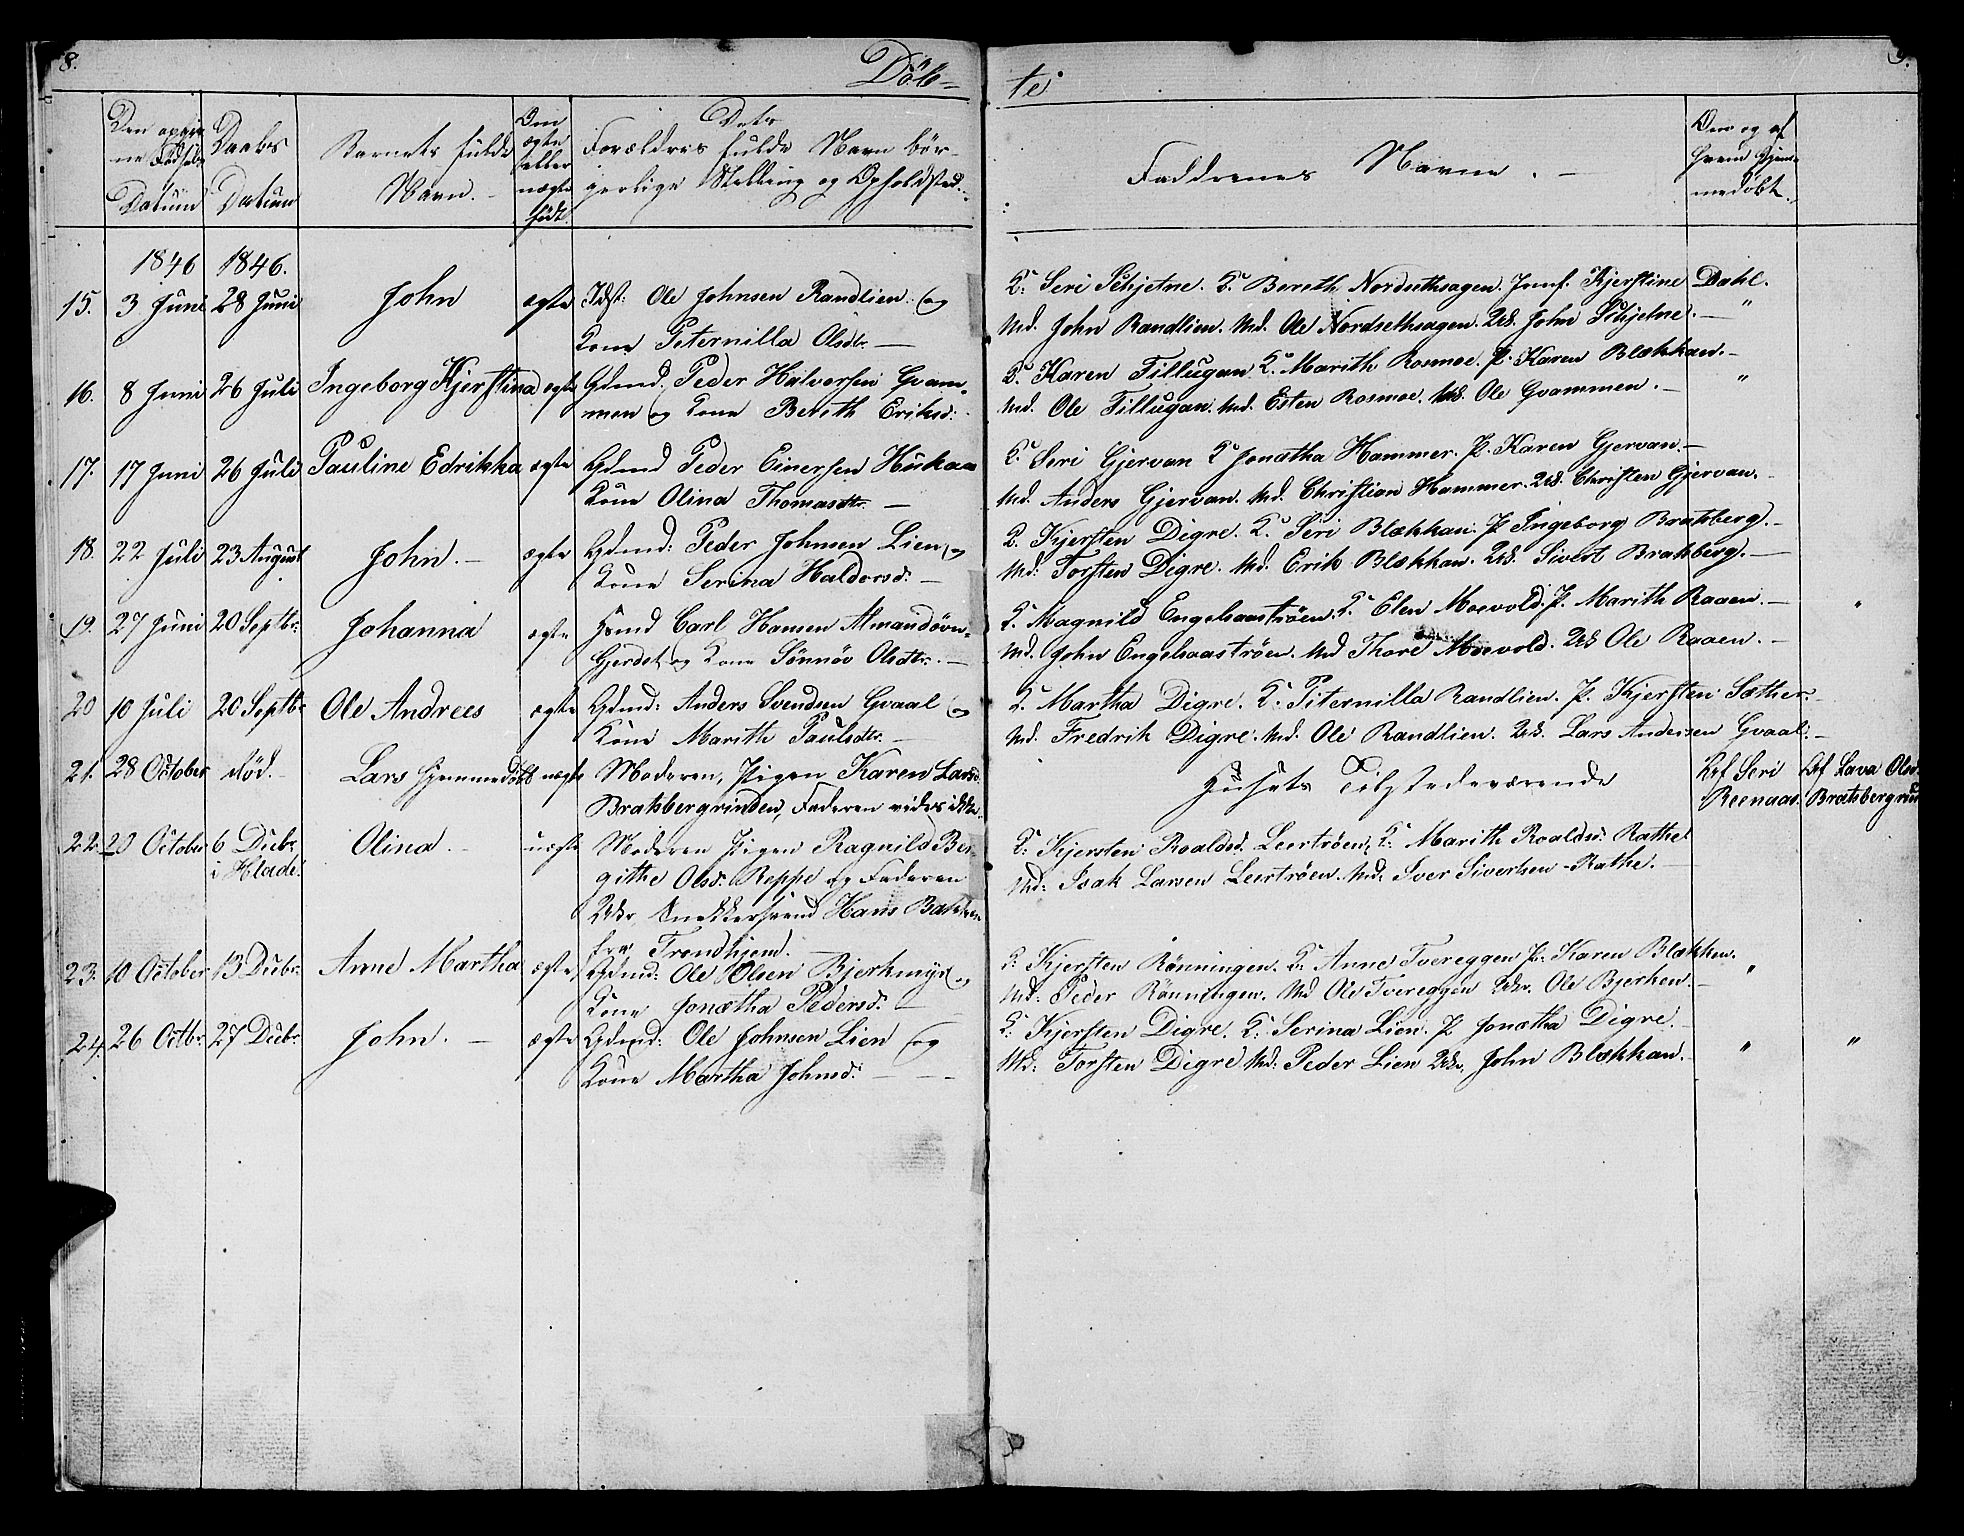 8. Döb-
te 9.
Den opgiv
ne Födsels
Datum
Daabs
Datum
Barnets fulde
Navn. -
Om
ægte
eller
uægte
födt.
Dets
Forældres fulde Navn bör-
gerlige Stilling og Opholdsted. -
Faddernes Navne. -
Om og af
hvem Hjem-
medöbt.
1846 1846.
15. 3 Juni 28 Juni John ægte Idst: Ole Johnsen Randlien. og
Kone Peternilla Olsdr. —
K: Seri Schjetne. K. Bereth Nordsethsagen. Jomf. Kjerstine Dahl.
Md. John Randlien. Md. Ole Nordsethsagen. Uk. John Schjetne. — "
16. 8 Juni 26 Juli Ingeborg Kjerstina ægte Gdmd. Peder Halvorsen Gvam-
men og Kone Bereth Eriksd.
K. Karen Tillugan K. Marith Rosmoe. P. Karen Blækkan. -
Md. Ole Tillugan. Md. Esten Rosmoe. Uk. Ole Gvammen. - "
17. 17 Juni 26 Juli Pauline Edrikka ægte Gdmd Peder Einersen
Kone Olina Thomasdtr. —
K. Seri Gjervan K Jonatha Hammer. P. Karen Gjervan. -
Md. Anders Gjervan. Md. Christian Hammer. Uk. Christen Gjervan. -
18. 22 Juli 23 August John. - ægte Gdmd: Peder Johnsen Lien og
Kone Serina Haldorsd. -
K. Kjersten Digre. K. Seri Blækkan. P Ingeborg Bratsberg. -
Md: Torsten Digre. Md. Erik Blækkan. Uk. Sivert Bratsberg. —
19. 27 Juni 20 Septbr. Johanna ægte Hsmd Carl Hansen Almandövn-
Gjerdet og Kone Sönnöv Olsdtr. —
K. Magnild Engelsaaströen. K. Elen Moevold. P. Marith Raaen. - "
Md. John Engelsaaströen. Md Thore Moevold. Uk Ole Raaen. -
20 10 Juli 20 Septbr Ole Andrees ægte Gdmd: Anders Svendsen Gvaal og
Kone Marith Paulsdtr. —
K. Martha Digre. K. Piternilla Randlien. P. Kjersten Sæther. -
Md. Fredrik Digre. Md. Ole Randlien. Uk. Lars Andersen Gvaal. -
21. 28 October död. - Lars hjemmedöbt uægte Moderen, Pigen Karen Larsd.
Bratsbergrinden, Faderen vides ikke.
Husets Tilstedeværende
Seri Reenaas. Lava Olsd.
22. 20 October 6 Decbr.
i Hlade. Olina. - uægte Moderen Pigen Ragnild Ber-
githe Olsd. Reppe og Faderen
Uk. Snekkersvend Hans Bakken
fra Trondhjem.
K: Kjersten Roaldsd. Leerströen, K. Marith Roaldsd. Rathe
Md: Isak Larsen Leerströen. Md: Iver Sivertsen Rathe. -
23. 10 October 13 Decbr. Anne Martha ægte Gdmd: Ole Olsen Bjerkmyr og
Kone Jonætha Pedersd. -
K. Kjersten Rönningen. K. Anne Tvereggen P. Karen Blækken. "
Md: Peder Rönningen. Md Ole Tvereggen Uk. Ole Bjerken. -
24. 26 Octbr. 27 Decbr. John. - ægte Gdmd: Ole Johnsen Lien og
Kone Martha Johnsd. — —
K. Kjersten Digre. K. Serina Lien. P Jonætha Digre. -
Md: Torsten Digre Md: Peder Lien Uk. John Blækkan. - " "